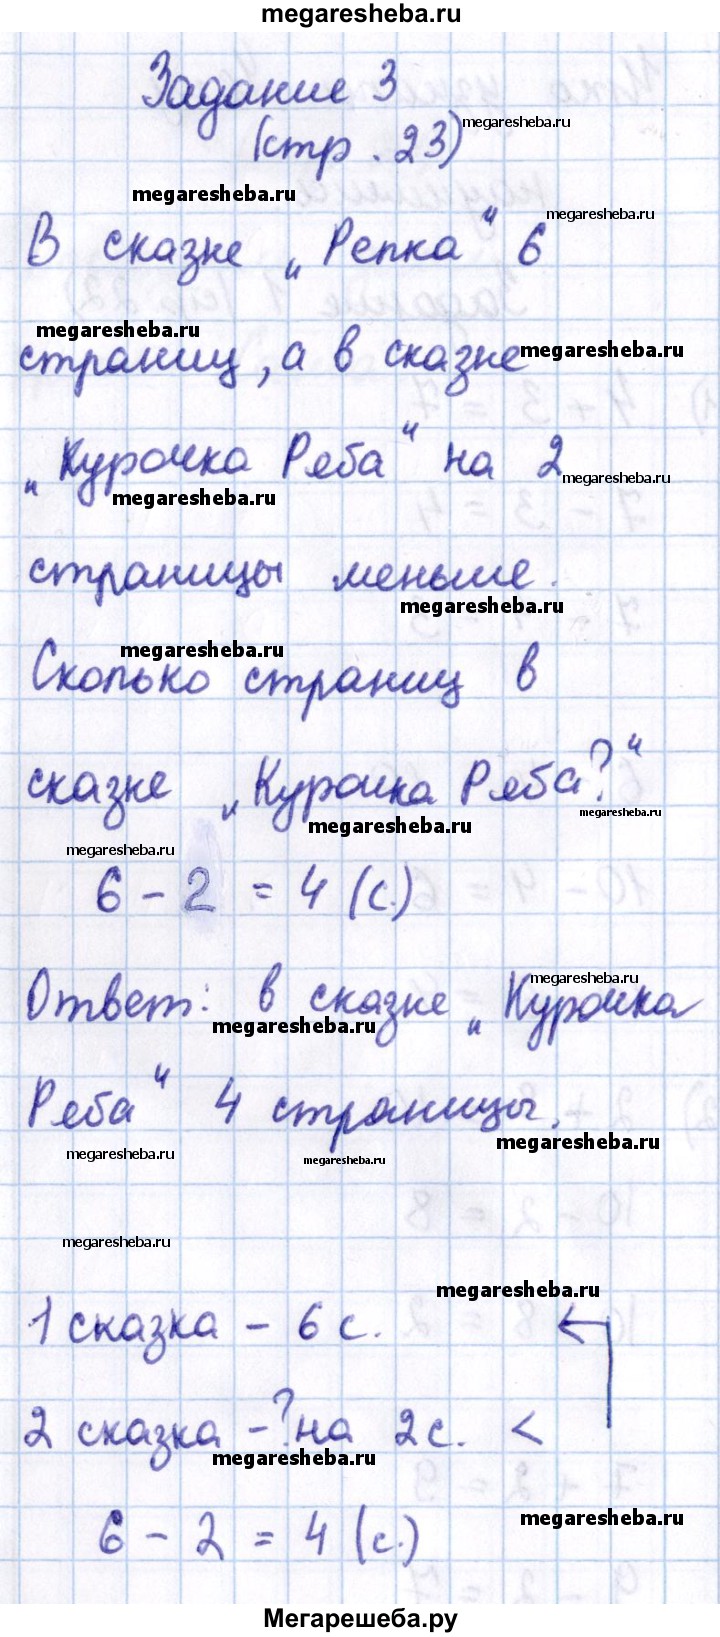 megaresheba.ru
Задание 3
megaresheba.ru
(стр. 23)
megaresheba.ru
megaresheba.ru
В сказке „Репка" 6
megaresheba.ru
megaresheba.ru
страниц, а в сказке
„Курочка Ряба" на 2
megaresheba.ru
megaresheba.ru
страницы меньше.
megaresheba.ru
megaresheba.ru
Сколько страниц в
сказке „Курочка Ряба?"
megaresheba.ru
megaresheba.ru
megaresheba.ru
6 - 2 = 4 (с.)
megaresheba.ru
Ответ: в сказке „Курочка
megaresheba.ru
Ряба" 4 страницы.
megaresheba.ru
megaresheba.ru
megaresheba.ru
megaresheba.ru
megaresheba.ru
1 сказка - 6 с.
2 сказка - ? на 2 с. <
megaresheba.ru
megaresheba.ru
6 - 2 = 4 (с.)
Мегарешеба.ру